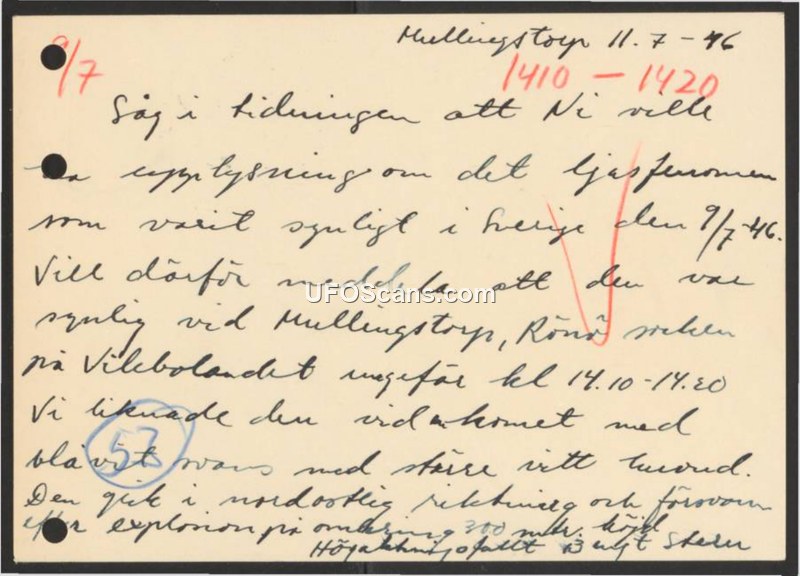 Mullingstorp 11.7-46
9/7
1410 - 1420
Såg i tidningen att Ni ville
ha upplysning om det ljusfenomen
som varit synligt i Sverige den 9/7-46.
Vill därför meddela att den var
UFOScans.com
synlig vid Mullingstorp, Rönö socken
på Vikbolandet ungefär kl 14.10-14.20
Vi liknade den vid en komet med
53
blåvit svans med större vitt huvud.
Den gick i nordostlig riktning och försvann
efter explosion på omkring 300 mtr. höjd
Högaktningsfullt Bengt